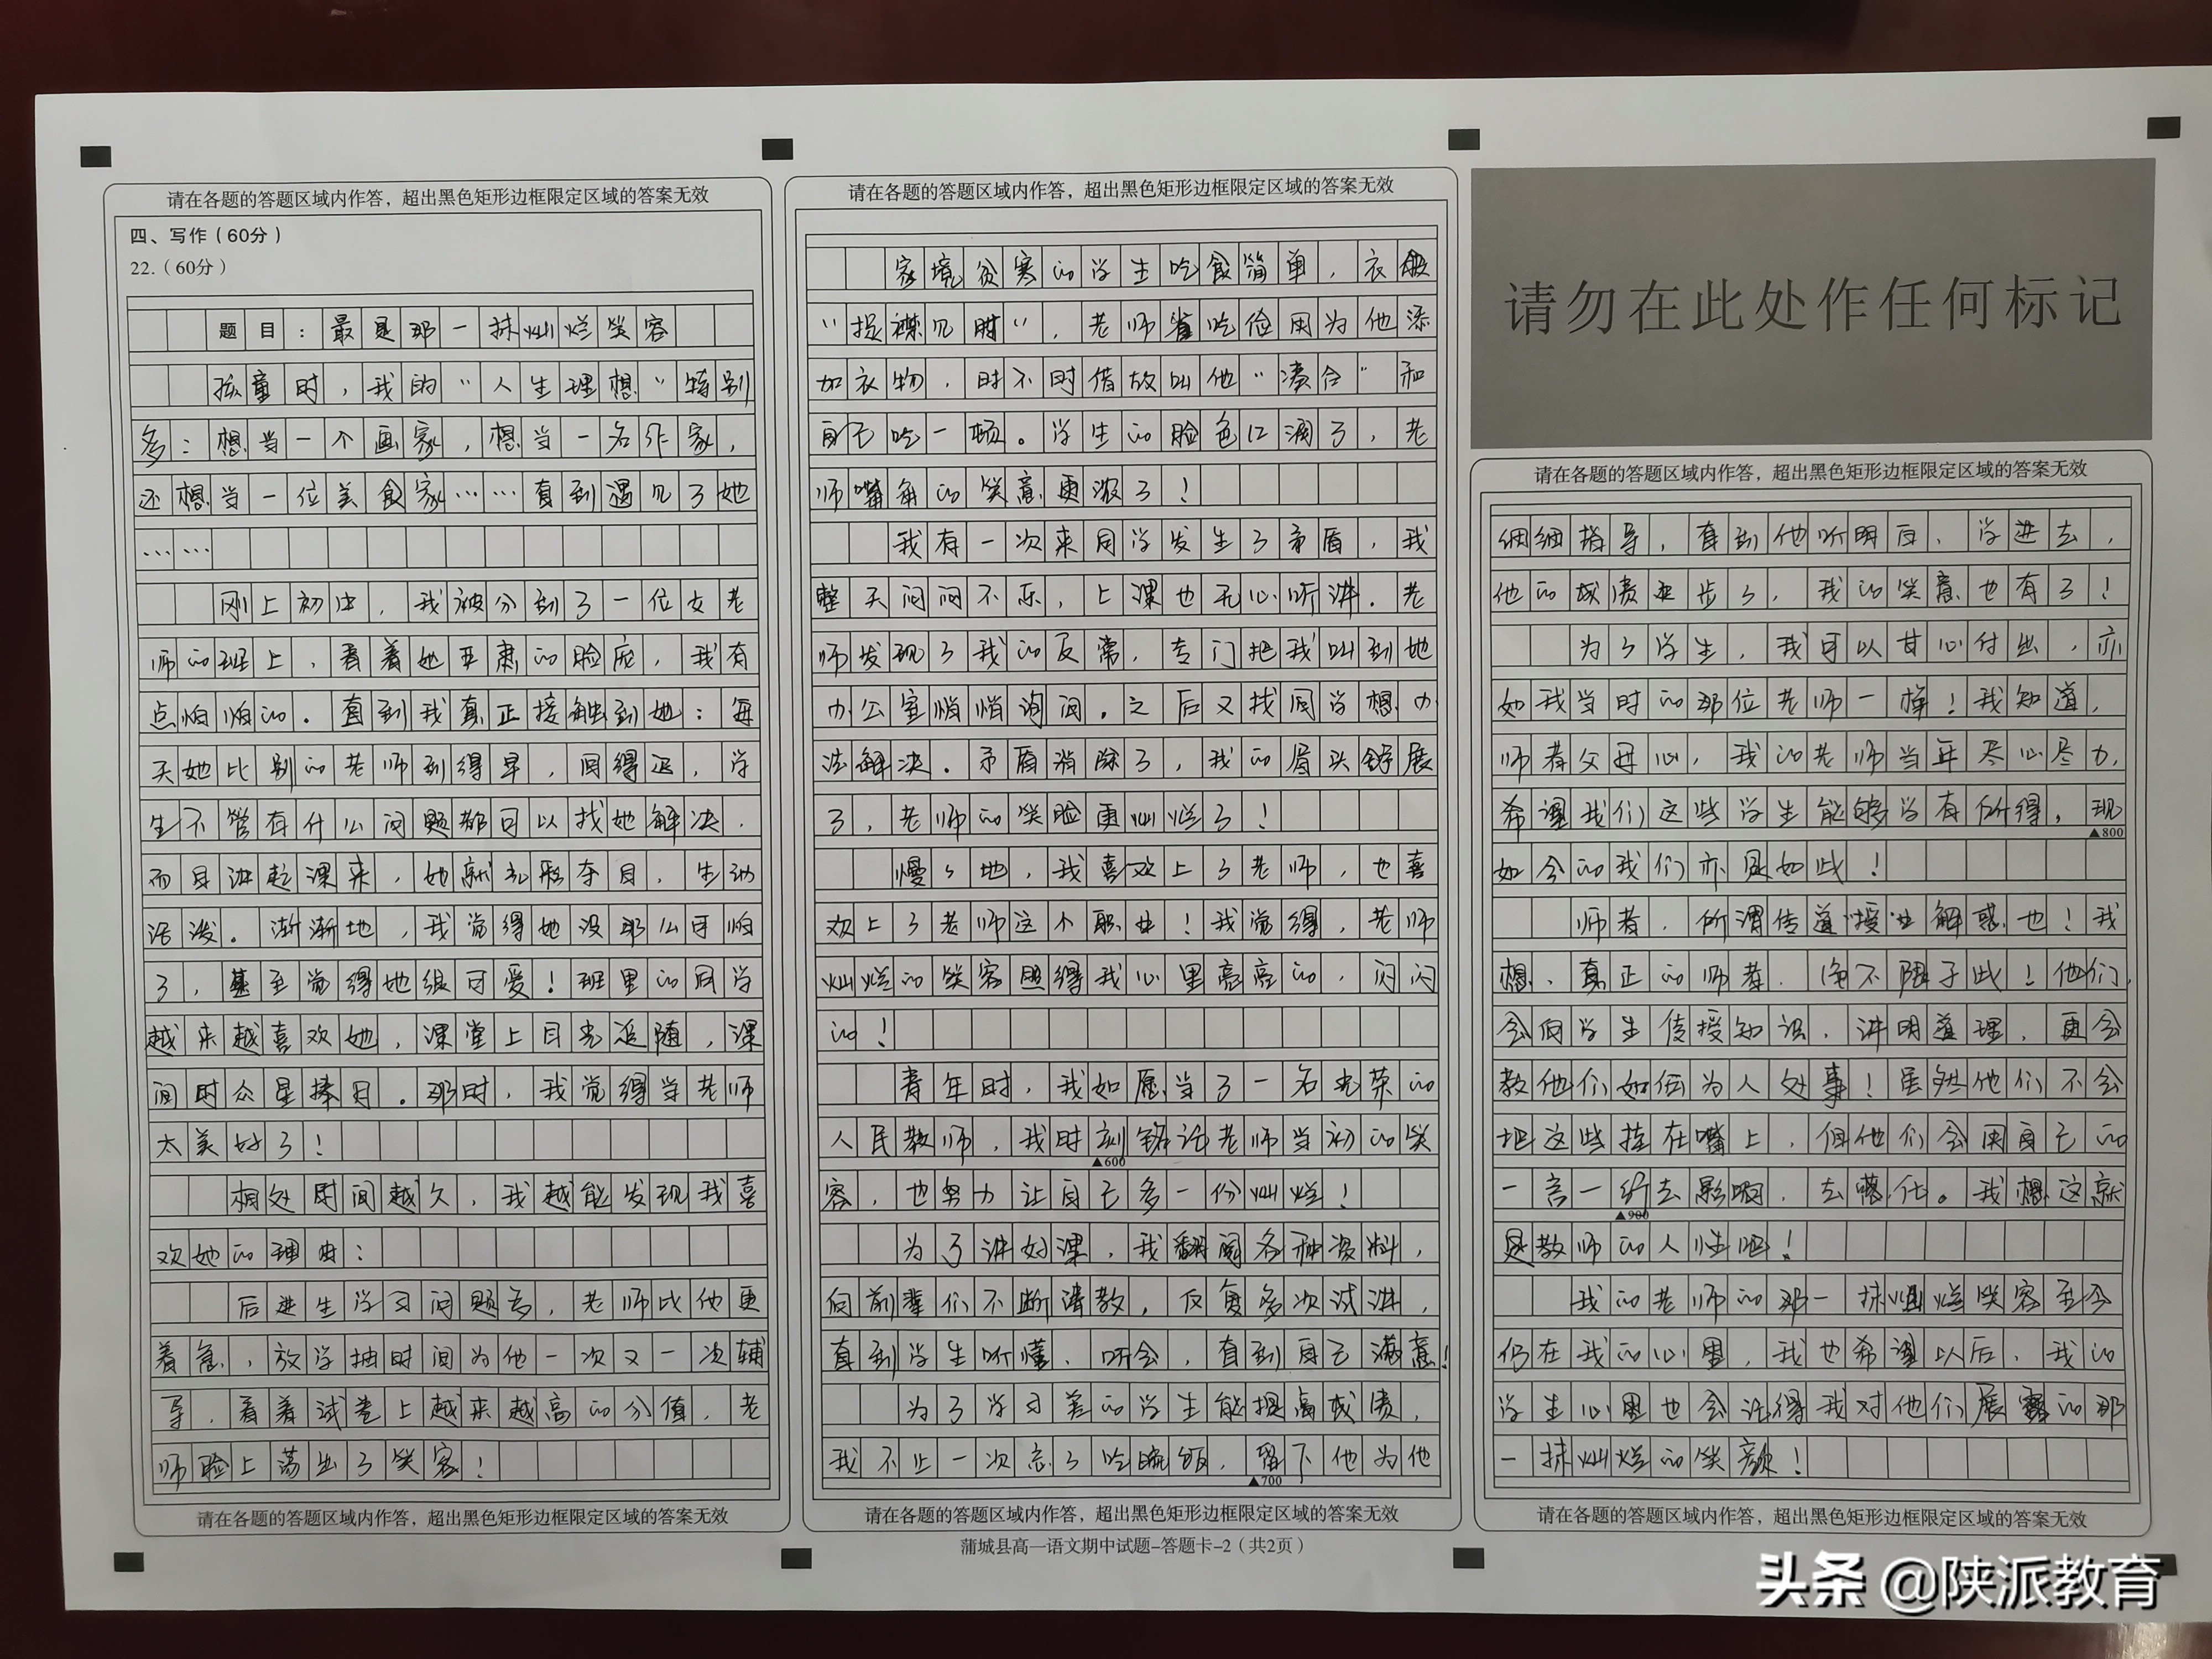 请在各题的答题区域内作答，超出黑色矩形边框限定区域的答案无效
四、写作（60分）
22.（60分）
题目：最是那一抹灿烂笑容
孩童时，我的“人生理想”特别
多：想当一个画家，想当一名作家，
还想当一位美食家……直到遇见了她
……
刚上初中，我被分到了一位女老
师的班上，看着她严肃的脸庞，我有
点怕怕的。直到我真正接触到她：每
天她比别的老师到得早，回得迟，学
生不管有什么问题都可以找她解决，
而且讲起课来，她就光彩夺目，生动
活泼。渐渐地，我觉得她没那么可怕
了，甚至觉得她很可爱！班里的同学
越来越喜欢她，课堂上目光追随，课
间时众星捧月。那时，我觉得当老师
太美好了！
相处时间越久，我越能发现我喜
欢她的理由：
后进生学习问题多，老师比他更
着急，放学抽时间为他一次又一次辅
导，看着试卷上越来越高的分值，老
师脸上荡出了笑容！
请在各题的答题区域内作答，超出黑色矩形边框限定区域的答案无效
请在各题的答题区域内作答，超出黑色矩形边框限定区域的答案无效
家境贫寒的学生吃食简单，衣服
“捉襟见肘”，老师省吃俭用为他添
加衣物，时不时借故叫他“凑合”和
自己吃一顿。学生的脸色红润了，老
师嘴角的笑意更浓了！
我有一次来同学发生了矛盾，我
整天闷闷不乐，上课也无心听讲。老
师发现了我的反常，专门把我叫到她
办公室悄悄询问。之后又找同学想办
法解决。矛盾消除了，我的眉头舒展
了，老师的笑脸更灿烂了！
慢々地，我喜欢上了老师，也喜
欢上了老师这个职业！我觉得，老师
灿烂的笑容照得我心里亮亮的，闪闪
的！
青年时，我如愿当了一名光荣的
人民教师，我时刻铭记老师当初的笑
▲600
容，也努力让自己多一份灿烂！
为了讲好课，我翻阅各种资料，
向前辈们不断请教，反复多次试讲，
直到学生听懂、听会，直到自己满意！
为了学习差的学生能提高成绩，
我不止一次忘了吃晚饭，留下他为他
▲700
请在各题的答题区域内作答，超出黑色矩形边框限定区域的答案无效
蒲城县高一语文期中试题–答题卡–2（共2页）
请勿在此处作任何标记
请在各题的答题区域内作答，超出黑色矩形边框限定区域的答案无效
细细指导，直到他听明白、学进去，
他的成绩进步了，我的笑意也有了！
为了学生，我可以甘心付出，亦
如我当时的那位老师一样！我知道，
师者父母心，我的老师当年尽心尽力，
希望我们这些学生能够学有所得，现
▲800
如今的我们亦是如此！
师者，所谓传道授业解惑也！我
想，真正的师者，绝不限于此！他们，
会向学生传授知识，讲明道理，更会
教他们如何为人处事！虽然他们不会
把这些挂在嘴上，但他们会用自己的
一言一行去影响，去感化。我想这就
▲900
是教师的人性吧！
我的老师的那一抹灿烂笑容至今
仍在我的心里，我也希望以后，我的
学生心里也会记得我对他们展露的那
一抹灿烂的笑颜！
请在各题的答题区域内作答，超出黑色矩形边框限定区域的答案无效
头条 @陕派教育